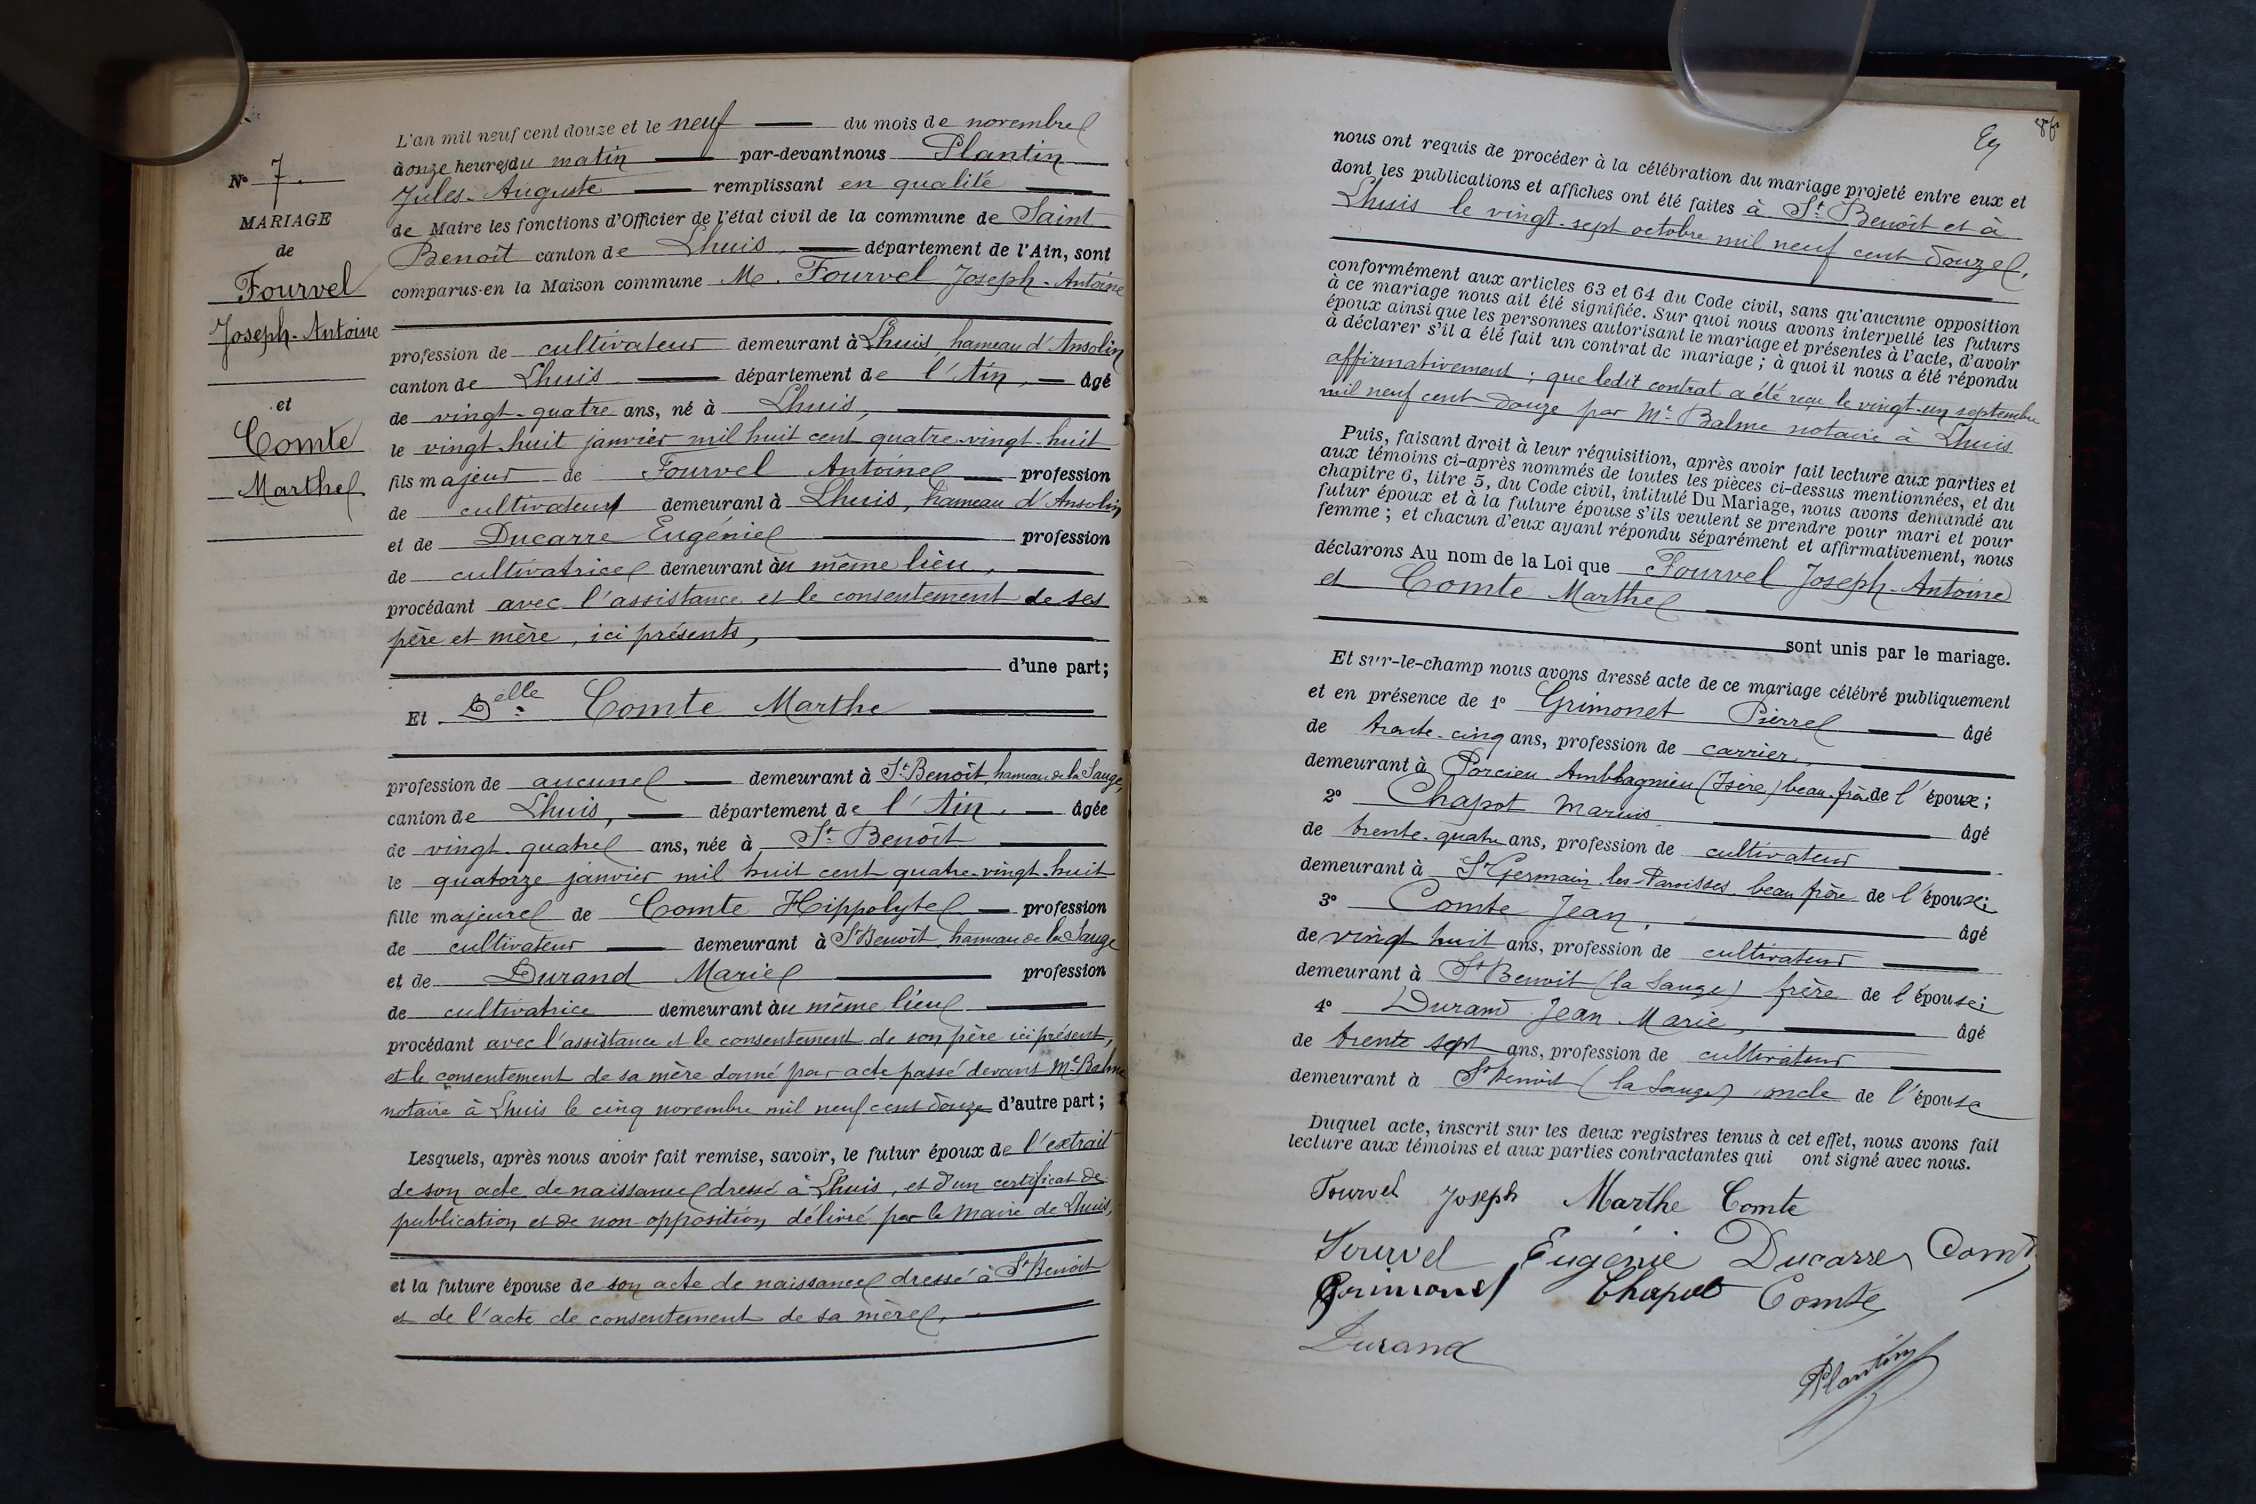 N° 7.
MARIAGE
de
Fourvel
Joseph-Antoine
et
Comte
Marthe
L'an mil neuf cent douze et le neuf du mois de novembre
à onze heures du matin par-devant nous Plantin
Jules-Auguste remplissant en qualité
de Maire les fonctions d'Officier de l'état civil de la commune de Saint
Benoît canton de Lhuis, département de l'Ain, sont
comparus en la Maison commune M. Fourvel Joseph-Antoine
profession de cultivateur demeurant à Lhuis, hameau d'Ansolin
canton de Lhuis département de l'Ain, âgé
de vingt-quatre ans, né à Lhuis,
le vingt-huit janvier mil huit cent quatre-vingt-huit
fils majeur de Fourvel Antoine profession
de cultivateur demeurant à Lhuis, hameau d'Ansolin
et de Ducarre Eugénie profession
de cultivatrice demeurant au même lieu,
procédant avec l'assistance et le consentement de ses
père et mère, ici présents,
d'une part;
Et Delle Comte Marthe
profession de aucune demeurant à St Benoît, hameau de la Sauge,
canton de Lhuis, département de l'Ain, âgée
de vingt-quatre ans, née à St Benoît
le quatorze janvier mil huit cent quatre-vingt-huit
fille majeure de Comte Hippolyte profession
de cultivateur demeurant à St Benoît hameau de la Sauge
et de Durand Marie profession
de cultivatrice demeurant au même lieu
procédant avec l'assistance et le consentement de son père ici présent,
et le consentement de sa mère donné par acte passé devant Me Balme
notaire à Lhuis le cinq novembre mil neuf cent douze d'autre part;
Lesquels, après nous avoir fait remise, savoir, le futur époux de l'extrait
de son acte de naissance dressé à Lhuis, et d'un certificat de
publication et de non-opposition délivré par le Maire de Lhuis,
et la future épouse de son acte de naissance dressé à St Benoît
et de l'acte de consentement de sa mère,
nous ont requis de procéder à la célébration du mariage projeté entre eux et
dont les publications et affiches ont été faites à St Benoît et à
Lhuis le vingt-sept octobre mil neuf cent douze,
conformément aux articles 63 et 64 du Code civil, sans qu'aucune opposition
à ce mariage nous ait été signifiée. Sur quoi nous avons interpellé les futurs
époux ainsi que les personnes autorisant le mariage et présentes à l'acte, d'avoir
à déclarer s'il a été fait un contrat de mariage; à quoi il nous a été répondu
affirmativement; que ledit contrat a été reçu le vingt-un septembre
mil neuf cent douze par Me Balme notaire à Lhuis
Puis, faisant droit à leur réquisition, après avoir fait lecture aux parties et
aux témoins ci-après nommés de toutes les pièces ci-dessus mentionnées, et du
chapitre 6, titre 5, du Code civil, intitulé Du Mariage, nous avons demandé au
futur époux et à la future épouse s'ils veulent se prendre pour mari et pour
femme; et chacun d'eux ayant répondu séparément et affirmativement, nous
déclarons Au nom de la Loi que Fourvel Joseph-Antoine
et Comte Marthe
sont unis par le mariage.
Et sur-le-champ nous avons dressé acte de ce mariage célébré publiquement
et en présence de 1° Grimonet Pierre âgé
de trente-cinq ans, profession de carrier,
demeurant à Porcieu-Amblagnieu (Isère) beau-frère de l'époux;
2° Chapot Marius âgé
de trente-quatre ans, profession de cultivateur
demeurant à St Germain-les-Paroisses beau frère de l'épouse;
3° Comte Jean, âgé
de vingt huit ans, profession de cultivateur
demeurant à St Benoît (la Sauge) frère de l'épouse;
4° Durand Jean Marie, âgé
de trente sept ans, profession de cultivateur
demeurant à St Benoît (la Sauge) oncle de l'épouse
Duquel acte, inscrit sur les deux registres tenus à cet effet, nous avons fait
lecture aux témoins et aux parties contractantes qui ont signé avec nous.
Fourvel Joseph Marthe Comte
Fourvel Eugénie Ducarre Comte
Grimonet Chapot Comte
Durand
Plantin